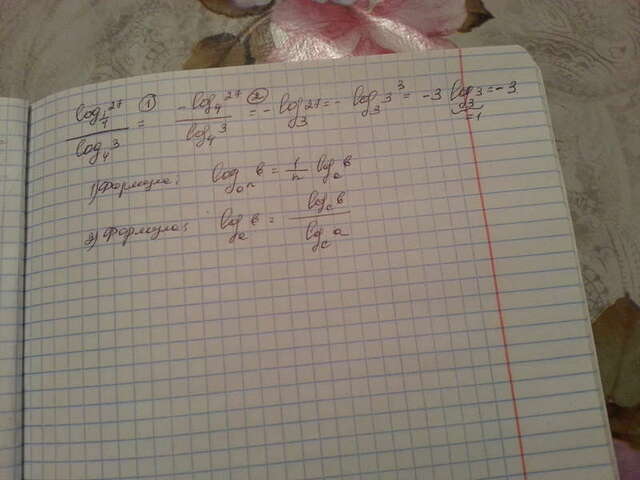 log_{1/4} 27 / log_4 3 =① -log_4 27 / log_4 3 =② -log_3 27 = -log_3 3^3 = -3 log_3 3 = -3.
=1
1) Формула: log_{a^n} b = 1/n log_a b
2) Формула: log_a b = log_c b / log_c a